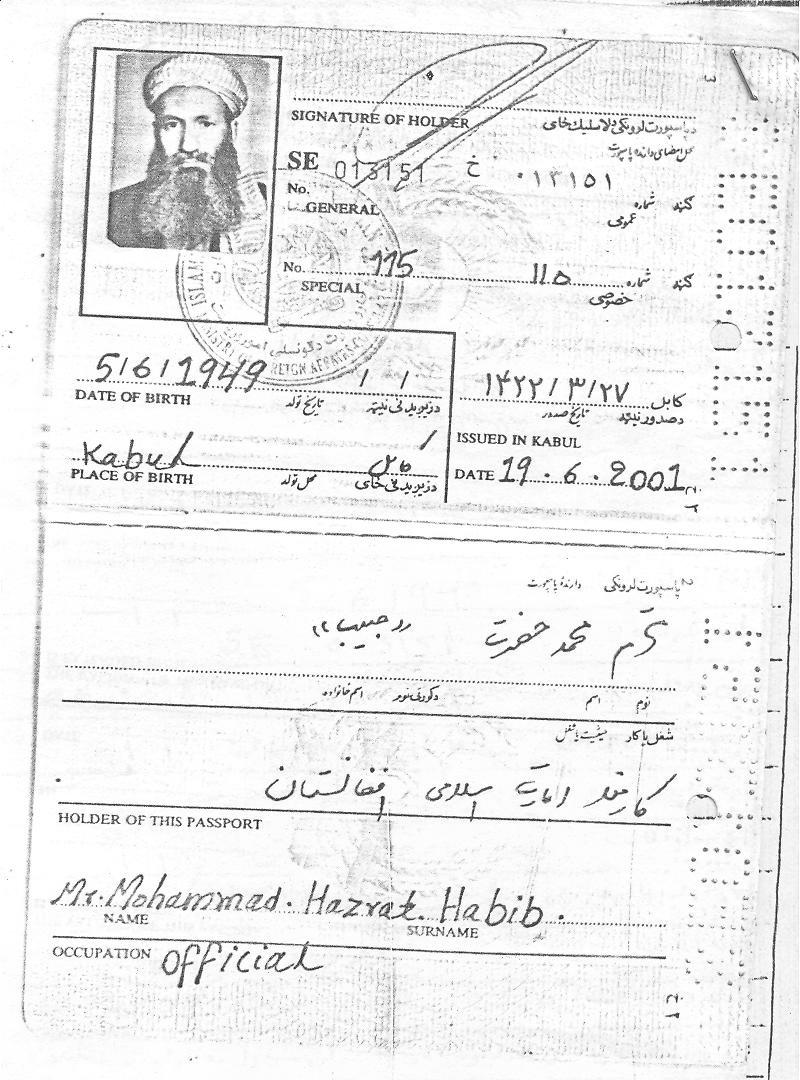 SIGNATURE OF HOLDER
د پاسپورت لرونکی د لاسلیک ځای
محل امضای دارنده پاسپورت
SE 013151 خ ۰۱۳۱۵۱
No. GENERAL
گڼه شماره
عمومی
No. 115 ۱۱۵
SPECIAL
گڼه شماره
خصوصی
5/6/1949 / /
DATE OF BIRTH تاریخ تولد د زیږیدنی نیټه
کابل ۱۴۲۲/۳/۲۷
د صدور نیټه تاریخ صدور
ISSUED IN KABUL
Kabul کابل
PLACE OF BIRTH محل تولد د زیږیدنی ځای
DATE 19.6.2001
پاسپورت لرونکی دارندهٔ پاسپورت
محمد حضرت حبیب
نوم اسم د کورنی نوم اسم خانواده
شغل یا کار
امارت اسلامی افغانستان
HOLDER OF THIS PASSPORT
Mr. Mohammad. Hazrat. Habib.
NAME SURNAME
OCCUPATION official